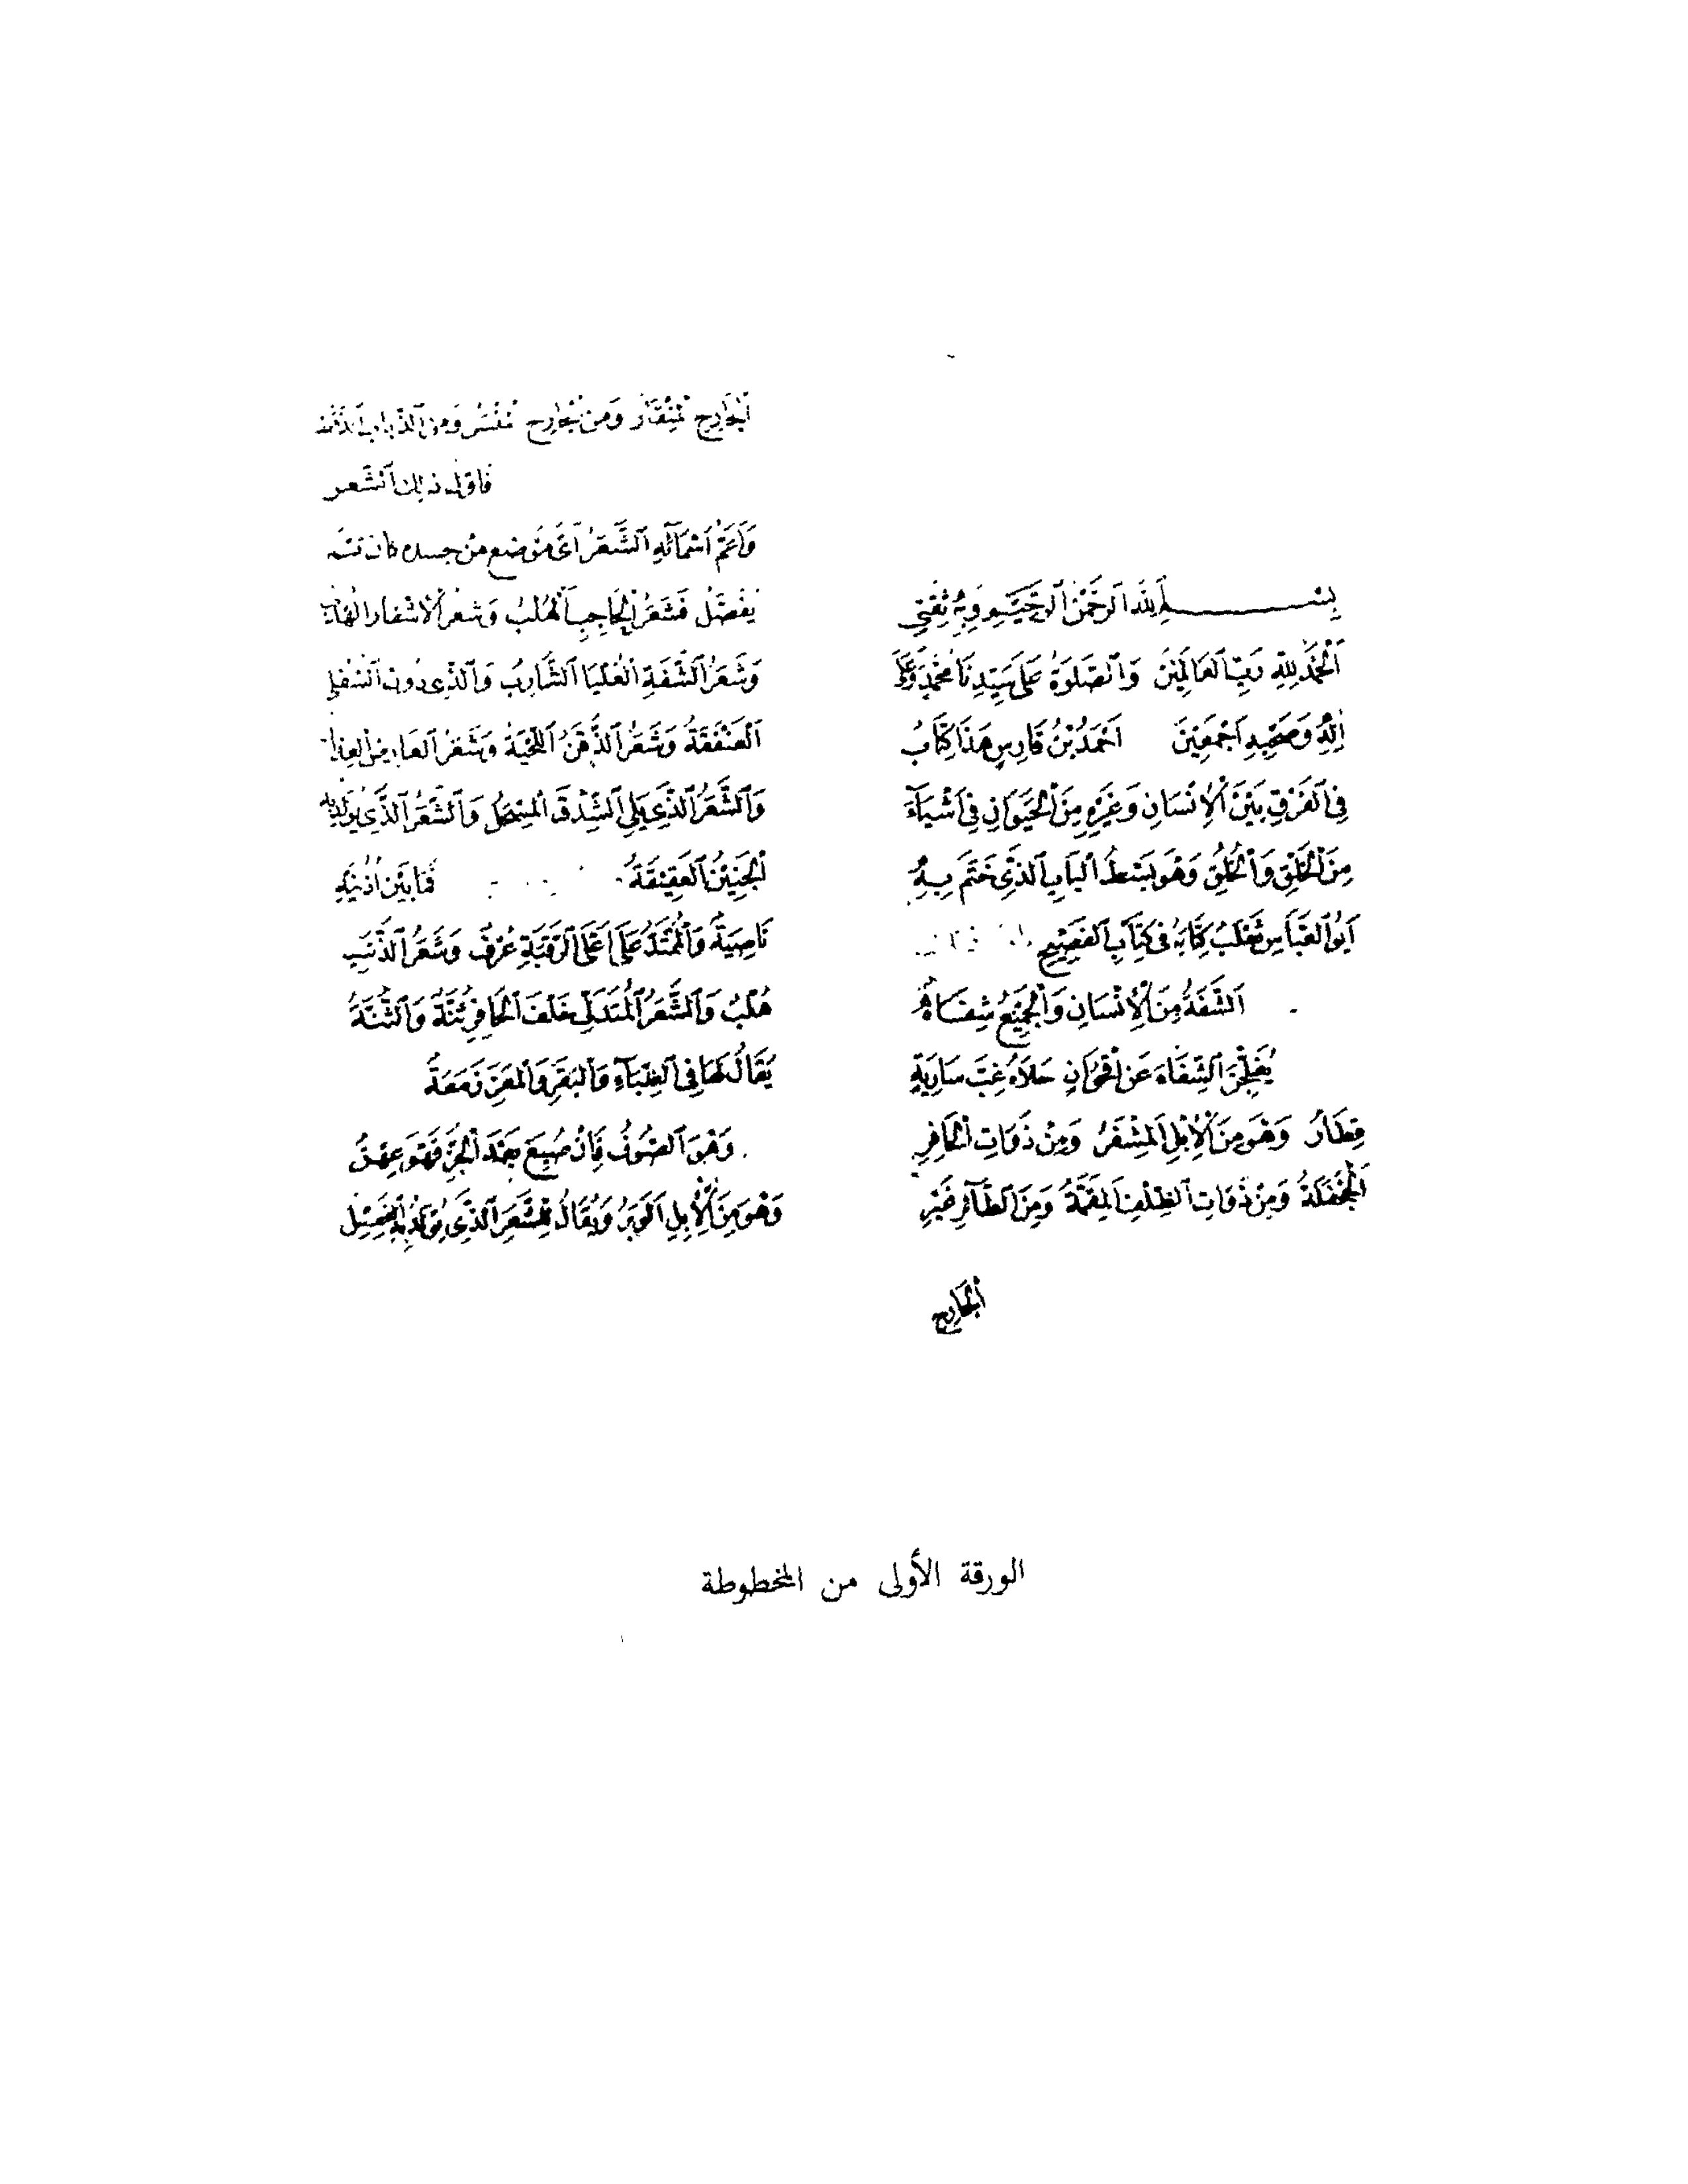 بِسْمِ اللهِ الرَّحْمٰنِ الرَّحِيْمِ وَبِهِ ثِقَتِي
اَلْحَمْدُ لِلّٰهِ رَبِّ الْعَالَمِيْنَ وَالصَّلٰوةُ عَلٰى سَيِّدِنَا مُحَمَّدٍ وَعَلٰى
اٰلِهِ وَصَحْبِهِ اَجْمَعِيْنَ اَحْمَدُ بْنُ فَارِسٍ هَذَا كِتَابُ
فِي الْفَرْقِ بَيْنَ الْاِنْسَانِ وَغَيْرِهِ مِنَ الْحَيَوَانِ فِي اَشْيَآءَ
مِنَ الْخَلْقِ وَالْخُلُقِ وَهُوَ بَسْطُ الْبَابِ الَّذِي خَتَمَ بِهِ
اَبُو الْعَبَّاسِ ثَعْلَبُ كِتَابَهُ فِي كِتَابِ الْفَصِيْحِ
اَلشَّفَةُ مِنَ الْاِنْسَانِ وَالْجَمِيْعُ شِفَاهُ
يُفَلِّجْنَ الشِّفَاهَ عَنْ اُقْحُوَانٍ جَلَاهُ غِبَّ سَارِيَةٍ
قِطَارُ وَهُوَ مِنَ الْاِبِلِ الْمِشْفَرُ وَمِنْ ذَوَاتِ الْحَافِرِ
الْجَحْفَلَةُ وَمِنْ ذَوَاتِ الظِّلْفِ الْمِقَمَّةُ وَمِنَ الطَّآئِرِ غَيْرِ
الْجَارِحِ
الْجَارِحِ مِنْقَارُ وَمِنَ الْجَارِحِ مِنْسَرُ وَمِنَ الذُّبَابِ
فَاوَّلُ ذٰلِكَ الشَّعَر
وَاَعَمُّ اَسْمَآئِهِ الشَّعَرُ اَيَّ مَوْضِعٍ مِنْ جِسَدِهِ كَانَ ثُمَّ
يُفَصَّلُ فَشَعَرُ الْحَاجِبِ الْهُلْبُ وَشَعَرُ الْاَشْفَارِ
وَشَعَرُ الشَّفَةِ الْعُلْيَا الشَّارِبُ وَالَّذِي دُونَ السُّفْلٰى
الْعَنْفَقَةُ وَشَعَرُ الذَّقَنِ اللِّحْيَةُ وَشَعَرُ الْعَارِضِ الْعِذَارُ
وَالشَّعَرُ الَّذِي يَلِي الشِّدْقَ الْمِسْحَلُ وَالشَّعَرُ الَّذِي يُولَدُ بِهِ
الْجَنِيْنُ الْعَقِيْقَةُ فَمَا بَيْنَ اُذُنَيْهِ
نَاصِيَةُ وَالْمُمْتَدُّ عَلٰى اَعْلَى الرَّقَبَةِ عُرْفٌ وَشَعَرُ الذَّنَبِ
هُلْبُ وَالشَّعَرُ الْمُتَدَلِّي خَلْفَ الْحَافِرِ ثُنَّةُ وَالثُّنَّةُ
يُقَالُ لَهَا فِي الظِّبَآءِ وَالْبَقَرِ وَالْمَعْزِ زَمَعَةُ
وَهُوَ الصُّوفُ فَاِنْ صُبِغَ بَعْدَ الْجَزِّ فَهُوَ عِهْنُ
وَهُوَ مِنَ الْاِبِلِ الْوَبَرُ وَيُقَالُ لِلشَّعَرِ الَّذِي يُولَدُ بِهِ الْفَصِيْلُ
الورقة الأولى من المخطوطة